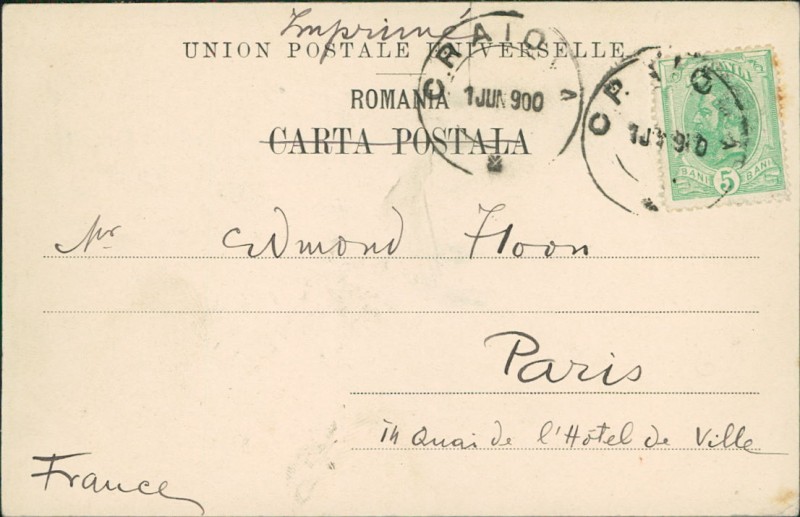 Imprimé
UNION POSTALE UNIVERSELLE
ROMANIA
CARTA POSTALA
CRAIOV
1 JUN 900
CR
ROMANIA
BANI 5 BANI
Mr Edmond Hoon
Paris
Quai de l'Hôtel de Ville
France